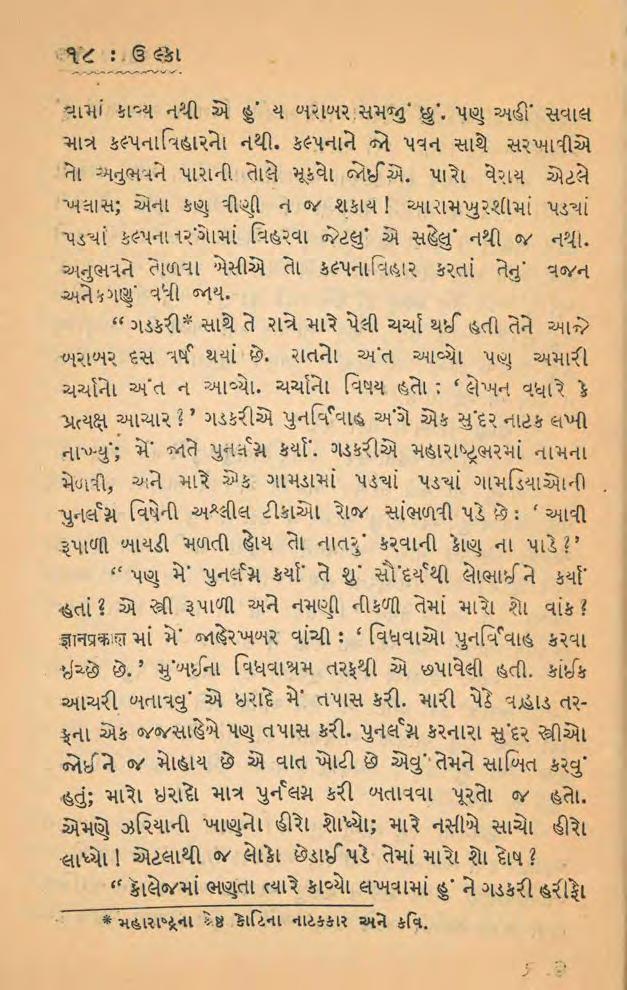 ૧૮ : ઉલ્કા
વામાં કાવ્ય નથી એ હું ય બરાબર સમજું છું. પણ અહીં સવાલ
માત્ર કલ્પનાવિહારનો નથી. કલ્પનાને જો પવન સાથે સરખાવીએ
તો અનુભવને પારાની તોલે મૂકવો જોઈએ. પારો વેરાય એટલે
ખલાસ; એના કણ વીણી ન જ શકાય! આરામખુરશીમાં પડ્યાં
પડ્યાં કલ્પનાતરંગોમાં વિહરવા જેટલું એ સહેલું નથી જ નથી.
અનુભવને તોળવા બેસીએ તો કલ્પનાવિહાર કરતાં તેનું વજન
અનેકગણું વધી જાય.
“ ગડકરી* સાથે તે રાત્રે મારે પેલી ચર્ચા થઈ હતી તેને આજે
બરાબર દસ વર્ષ થયાં છે. રાતનો અંત આવ્યો પણ અમારી
ચર્ચાનો અંત ન આવ્યો. ચર્ચાનો વિષય હતો : ‘ લેખન વધારે કે
પ્રત્યક્ષ આચાર ? ’ ગડકરીએ પુનર્વિવાહ અંગે એક સુંદર નાટક લખી
નાખ્યું; મેં જાતે પુનર્લગ્ન કર્યાં. ગડકરીએ મહારાષ્ટ્રભરમાં નામના
મેળવી, અને મારે એક ગામડામાં પડ્યાં પડ્યાં ગામડિયાઓની
પુનર્લગ્ન વિષેની અશ્લીલ ટીકાઓ રોજ સાંભળવી પડે છે : ‘ આવી
રૂપાળી બાયડી મળતી હોય તો નાતરું કરવાની કોણ ના પાડે ? ’
“ પણ મેં પુનર્લગ્ન કર્યાં તે શું સૌંદર્યથી લોભાઈને કર્યાં
હતાં ? એ સ્ત્રી રૂપાળી અને નમણી નીકળી તેમાં મારો શો વાંક ?
ज्ञानप्रकाश માં મેં જાહેરખબર વાંચી : ‘ વિધવાઓ પુનર્વિવાહ કરવા
ઈચ્છે છે. ’ મુંબઈના વિધવાશ્રમ તરફથી એ છપાવેલી હતી. કાંઈક
આચરી બતાવવું એ ઇરાદે મેં તપાસ કરી. મારી પેઠે વઢાડ તર-
ફના એક જજસાહેબે પણ તપાસ કરી. પુનર્લગ્ન કરનારા સુંદર સ્ત્રીઓ
જોઈને જ મોહાય છે એ વાત ખોટી છે એવું તેમને સાબિત કરવું
હતું; મારો ઇરાદો માત્ર પુર્નલગ્ન કરી બતાવવા પૂરતો જ હતો.
એમણે ઝરિયાની ખાણનો હીરો શોધ્યો; મારે નસીબે સાચો હીરો
લાધ્યો ! એટલાથી જ લોકો છેડાઈ પડે તેમાં મારો શો દોષ ?
“ કૉલેજમાં ભણતા ત્યારે કાવ્યો લખવામાં હું ને ગડકરી હરીફો
* મહારાષ્ટ્રના શ્રેષ્ઠ કોટિના નાટકકાર અને કવિ.